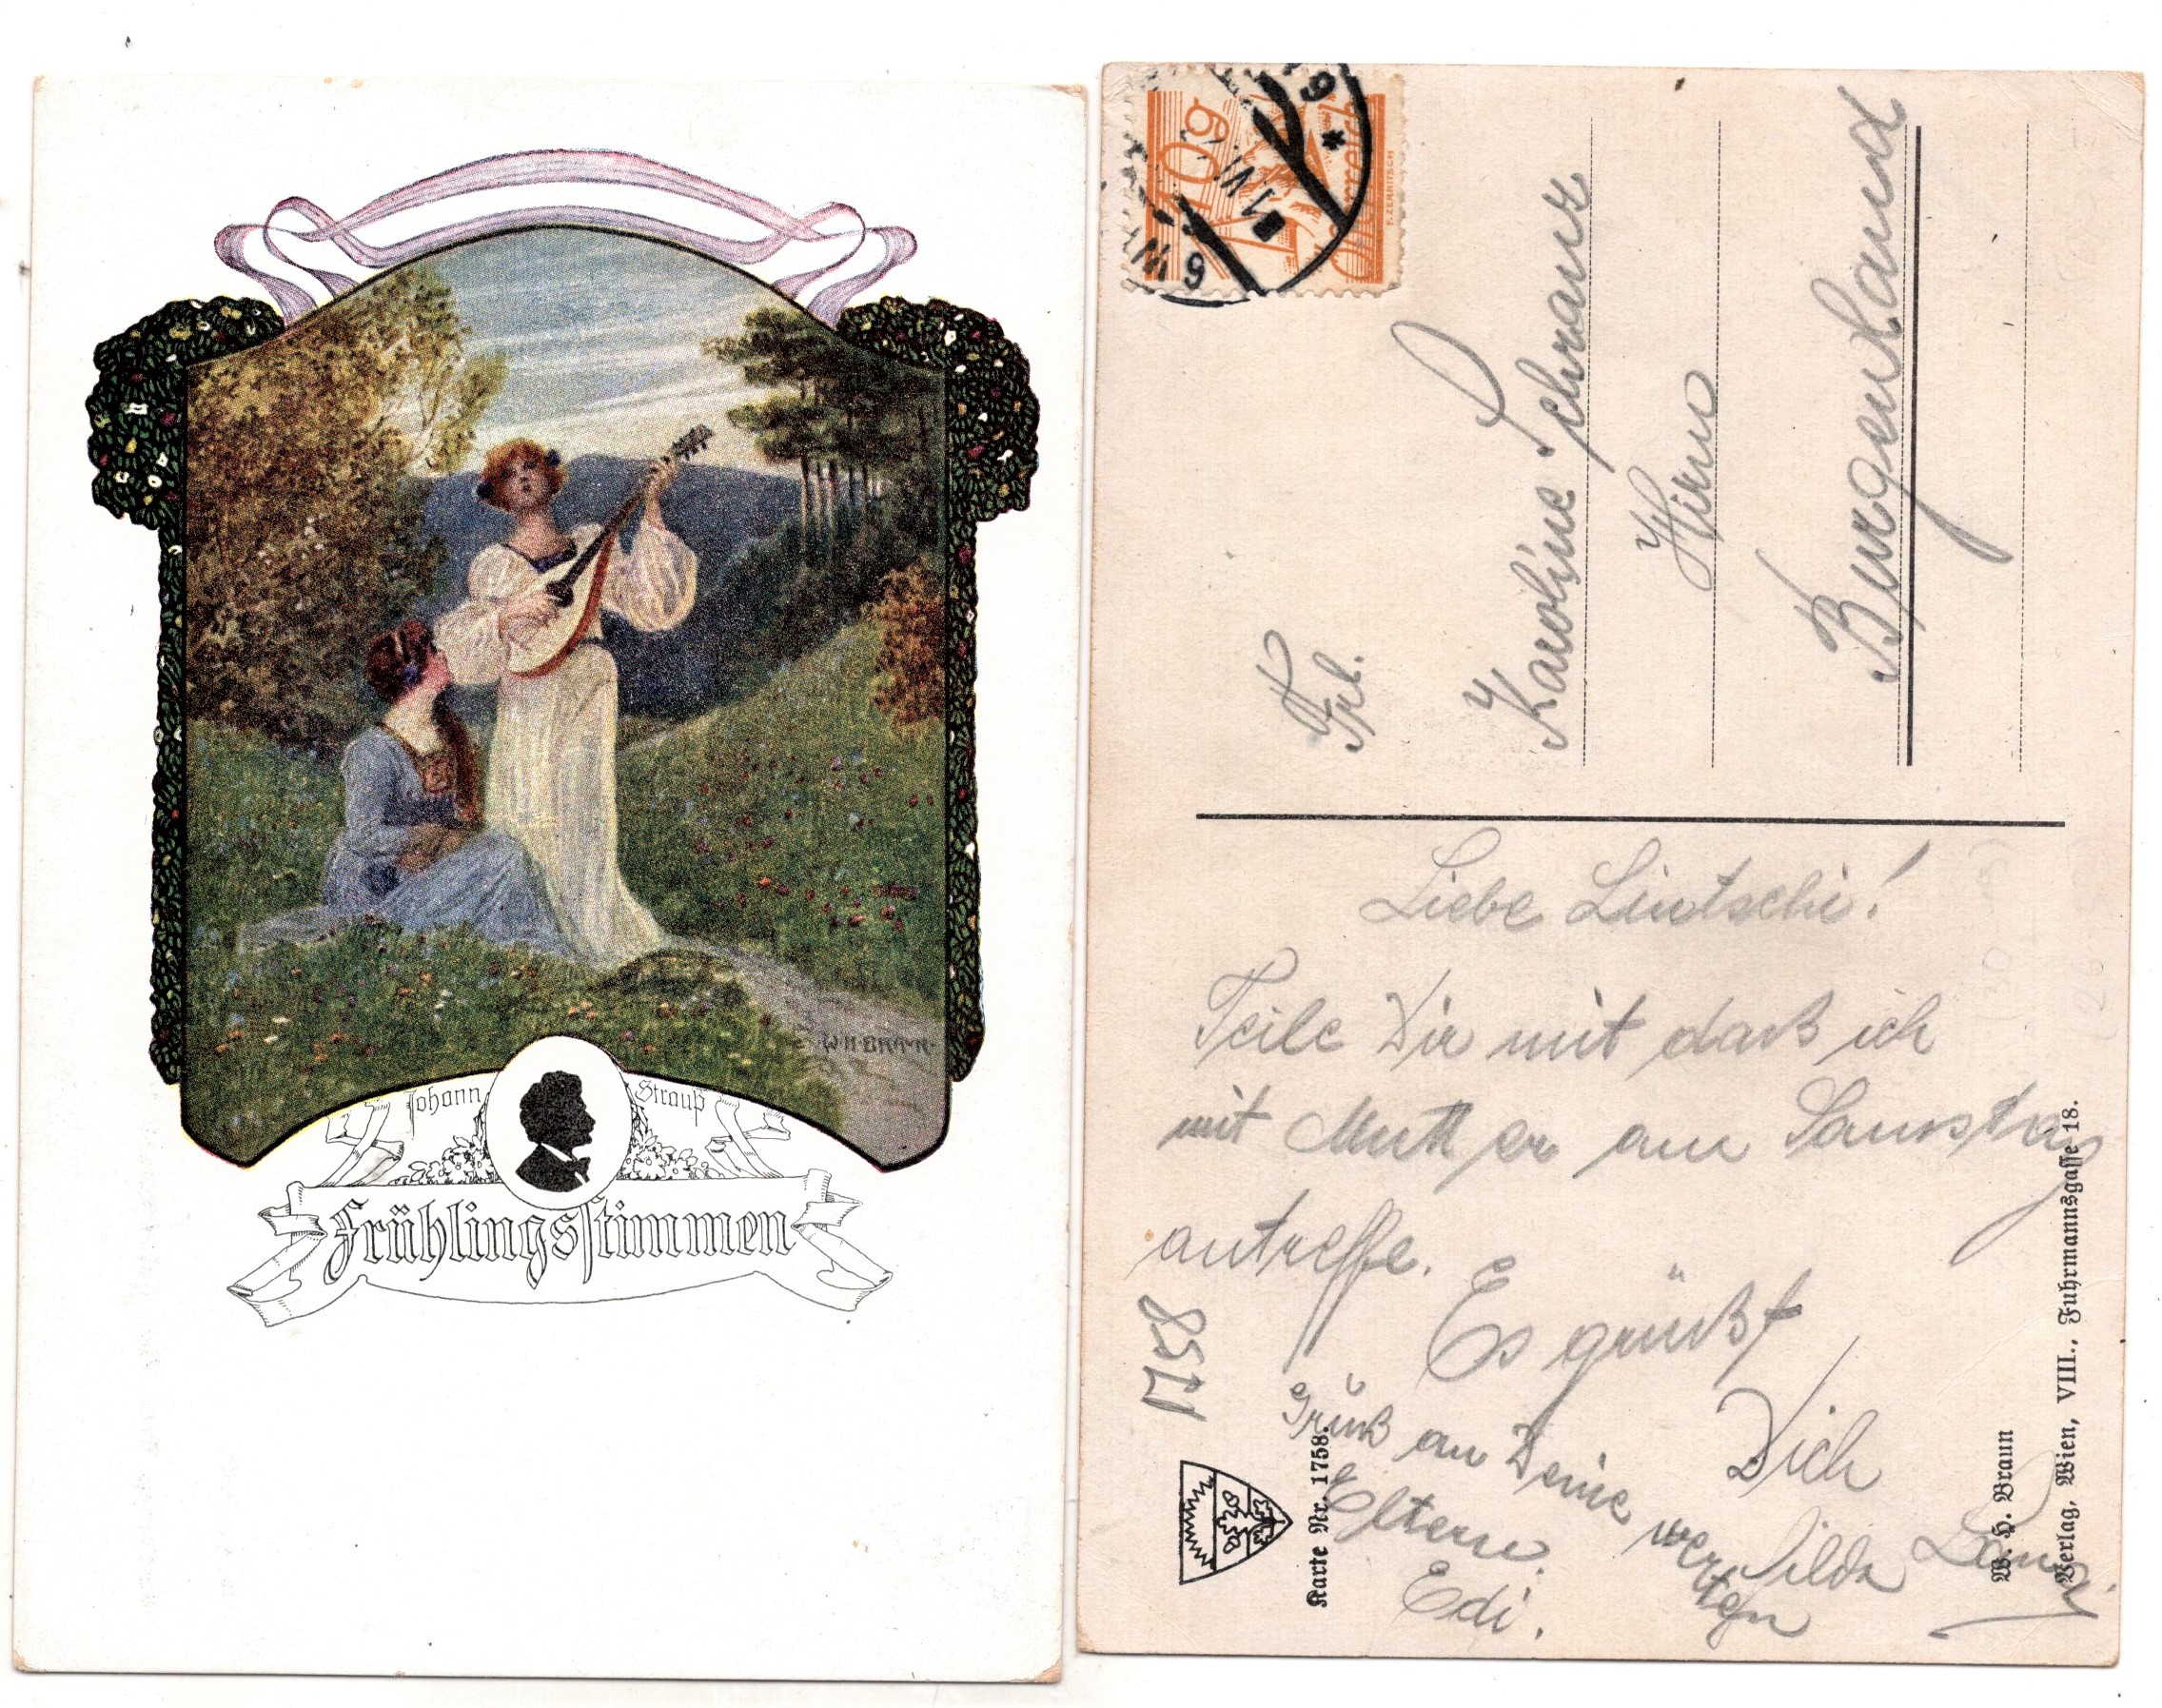 W·H·BRAUN·
Johann Strauß
Frühlingsstimmen
10g
Österreich
F. ZERRITSCH
Frl.
Karoline Schranz
Hirm
Burgenland
Liebe Lintschi!
Teile Dir mit daß ich
mit Mutter am Samstag
antreffe.
Es grüßt
Dich
Hilda
Gruß an Deine werten
Eltern.
Edi.
Karte Nr. 1758.
W. H. Braun
Verlag, Wien, VIII., Fuhrmannsgasse 18.